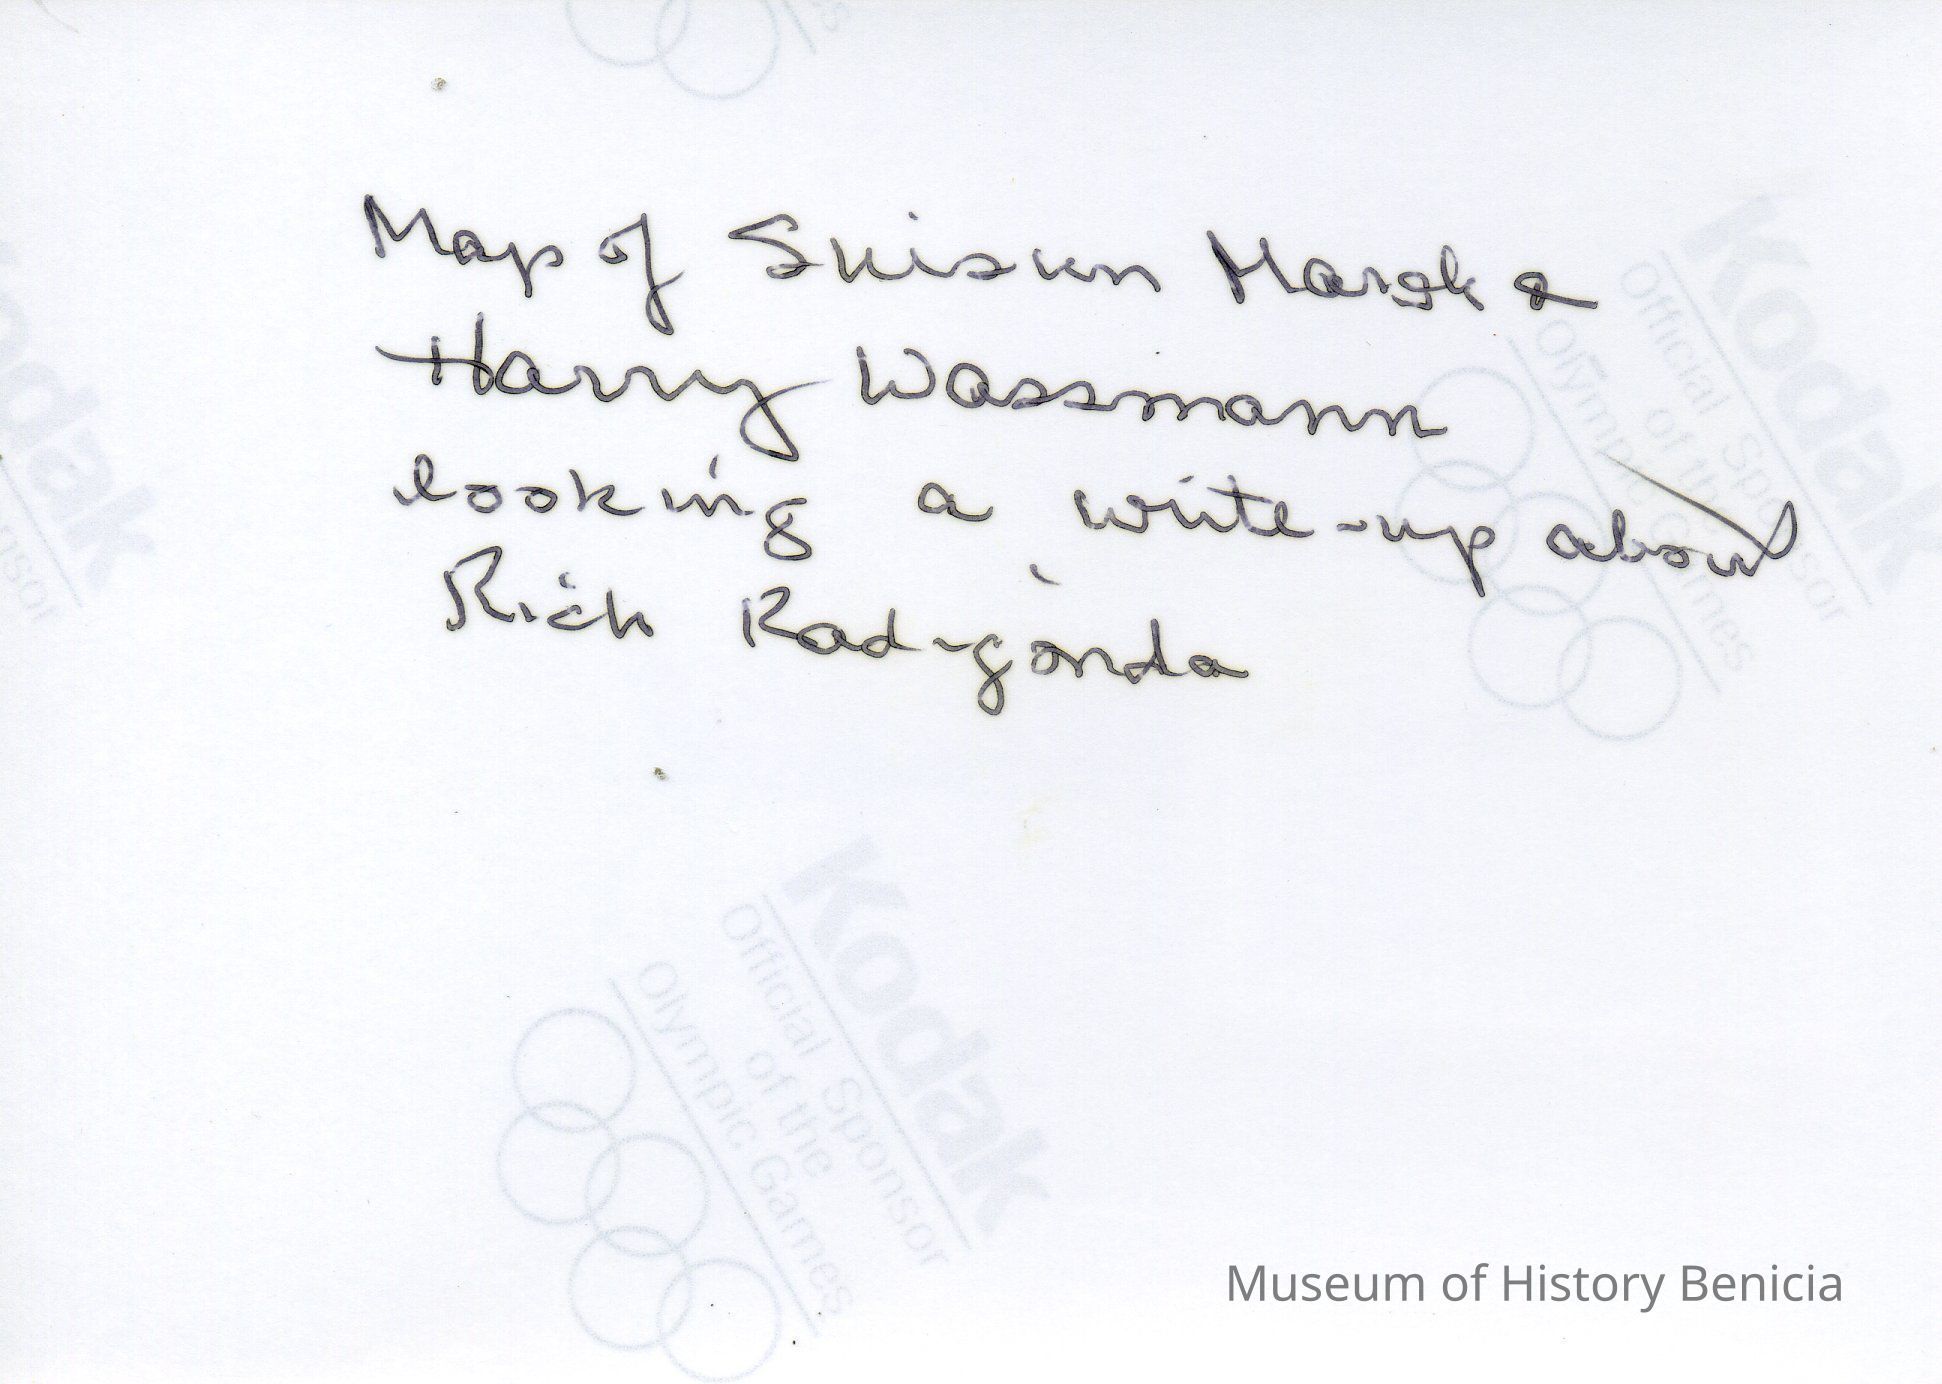 Map of Suisun Marsh &
Harry Wassmann
looking a write-up about
Rich Radigonda
Kodak
Official Sponsor
of the
Olympic Games
Kodak
Official Sponsor
of the
Olympic Games
Museum of History Benicia